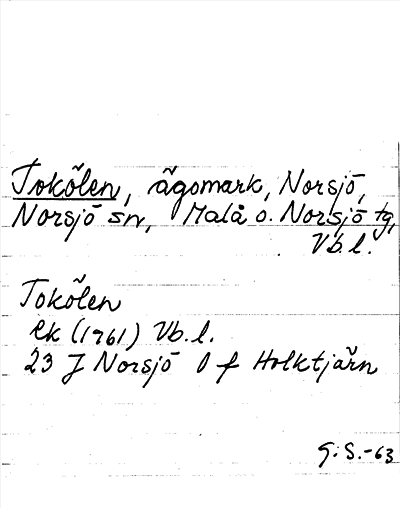 Tokölen, ägomark, Norsjö,
Norsjö sn, Malå o. Norsjö tg,
Vb.l.
Tokölen
ek (1961) Vb.l.
23 J Norsjö O f Holktjärn
G.S.-63